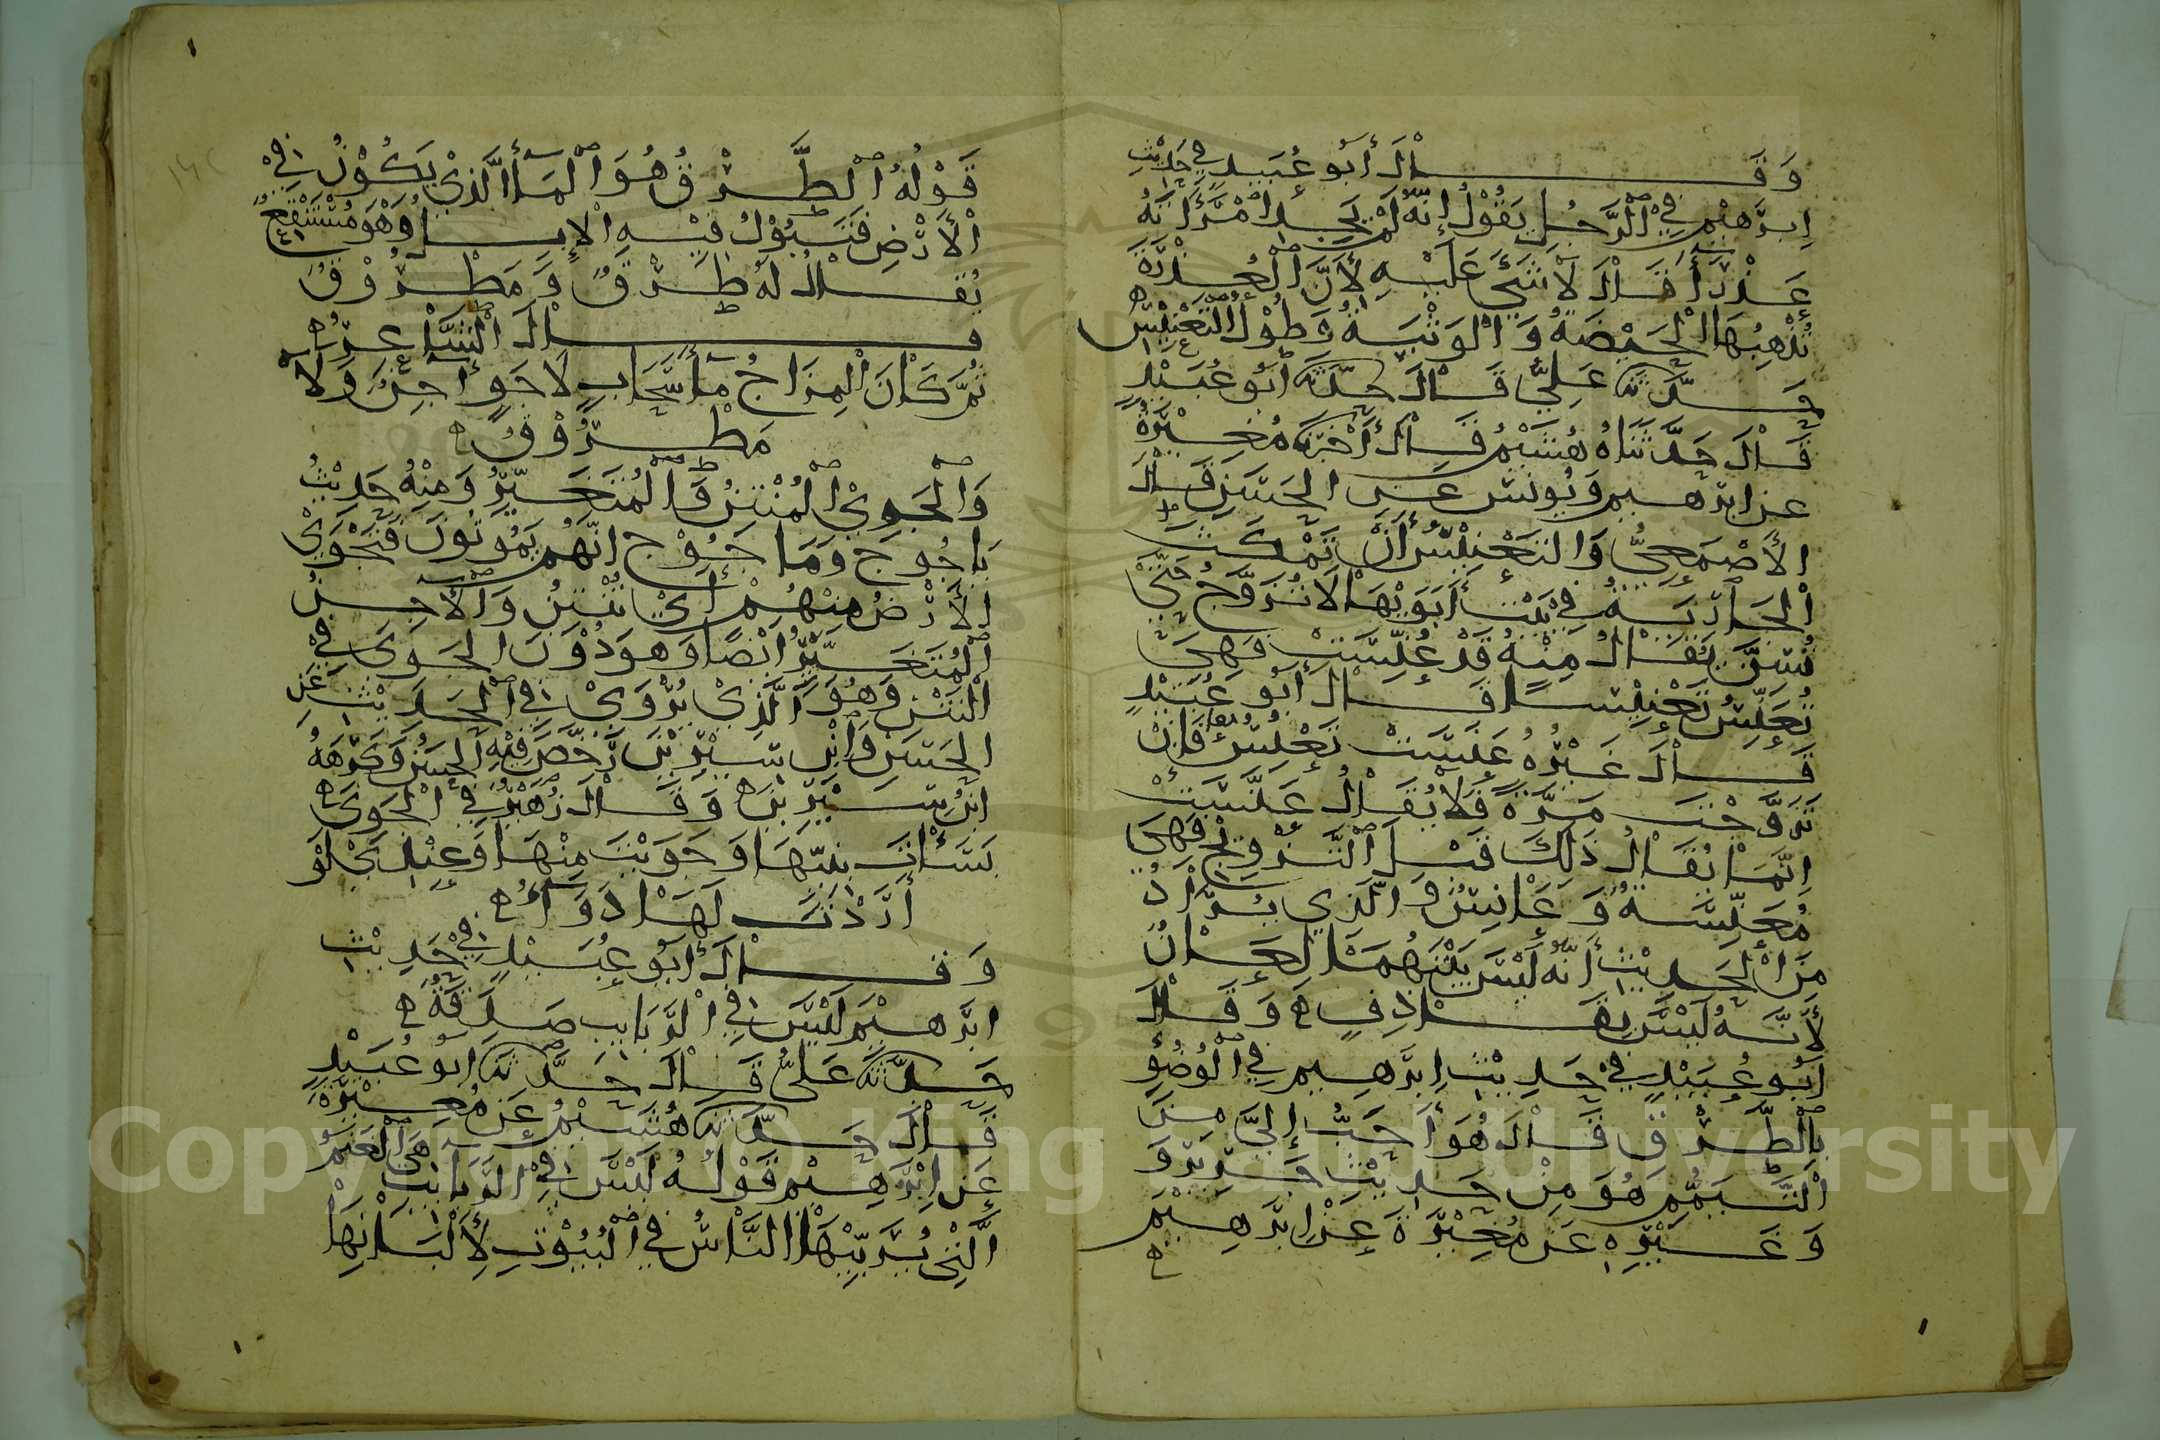 وَقَالَ أَبُو عُبَيْدٍ فِي حَدِيْثِ
اِبرَهِيْمَ فِي الرَّجُلِ يَقُوْلُ إِنَّهُ لَمْ يَجِدِ امْرَأَتَهُ
عَذْرَاءَ قَالَ لَا شَيْءَ عَلَيْهِ لأَنَّ الْعُذْرَةَ
تُذْهِبُهَا الْحَيْضَةُ وَالْوَثْبَةُ وَطُوْلُ التَّعْنِيْسِ
حَدَّثَنَا عَلِيٌّ قَالَ حَدَّثَنَا أَبُو عُبَيْدٍ
قَالَ حَدَّثَنَاهُ هُشَيْمٌ قَالَ أَخْبَرَنَا مُغِيْرَةُ
عن ابرهيم وَيُونس عَنِ الحَسَنِ قَالَ
الأَصْمَعِيُّ وَالتَّعْنِيْسُ أَنْ تَمْكُثَ
الْجَارِيَةُ فِي بَيْتِ أَبَوَيْهَا لَا تُزَوَّجُ حَتَّى
تُسِنَّ يُقَالُ مِنْهُ قَدْ عُنِّسَتْ فَهِيَ
تُعَنَّسُ تَعْنِيْسًا قَالَ أَبُو عُبَيْدٍ
قَالَ غَيْرُهُ عَنَسَتْ تَعْنُسُ فَإِنْ
تَزَوَّجَتْ مَرَّةً فَلَا يُقَالُ عَنَّسَتْ
اِنَّمَا يُقَالُ ذَلِكَ قَبْلَ التَّزْوِيْجِ فَهِيَ
مُعَنَّسَةٌ وَعَانِسٌ وَالَّذِي يُرَادُ
مِنَ الْحَدِيْثِ أَنَّهُ لَيْسَ بَيْنَهُمَا لِعَانٌ
لأَنَّهُ لَيْسَ بِقَاذِفٍ وَقَالَ
أَبُو عُبَيْدٍ فِي حَدِيْثِ اِبرَهِيم فِي الْوُضُوْءِ
بِالطَّرْقِ قَالَ هُوَ أَحَبُّ إِلَيَّ مِنَ
التَّيَمُّمِ هُوَ مِنْ حَدِيْثِ جَرِيْرٍ وَ
وَغَيْرِهِ عَنْ مُغِيْرَةَ عَنْ اِبرَهِيْمَ
قَوْلُهُ الطَّرْقُ هُوَ الْمَاءُ الَّذِيْ يَكُوْنُ فِي
الْأَرْضِ فَتَبُوْلُ فِيْهِ الْإِبِلُ وَهْوَ مُسْتَنْقَعٌ
يُقَالُ لَهُ طَرْقٌ وَمَطْرُوْقٌ
قَالَ الشَّاعِرُ
ثُمَّ كَانَ الْمِزَاجُ مَاءَ سَّحَابٍ لَا جَوٍ آجِنٌ وَلَا
مَطْرُوْقُ
وَالْجَوِيْ الْمُنْتِنُ الْمُتَغَيِّرُ وَمِنْهُ حَدِيْثُ
يَاجُوجَ وَمَاجُوْجَ انَّهُم يَمُوتُونَ فَتَجْوَى
الأَرْضُ مِنْهُمْ أَيْ تُنْتِنُ وَالْآجِنُ
الْمُتَغَيِّرُ ايْضًا وَهوَ دُوْنَ الْجَوِي فِي
النَّتْنِ وَهُوَ الَّذِيْ يُرْوَى فِي الْحَدِيْثِ عَنِ
الحَسَنِ وَابْنِ سِيْرِيْنَ رَخَّصَ فِيْهِ الْحَسَنُ وَكَرِهَهُ
ابنُ سِيْرِيْنَ وَقَالَ زُهَيْرٌ فِي الْجَوِي
بَسَأْتَ بِنَيِّهَا وَجَوِيْتَ مِنْهَا وَعِنْدِيْ لَوْ
أَرَدْتَ لَهَا دَوَاءُ
وَقَالَ أَبُو عُبَيْدٍ فِي حَدِيْثِ
ابرَهِيْمَ لَيْسَ فِي الرَّبَايِبِ صَدَقَةٌ
حَدَّثَنَا عَلِيٌّ قَالَ حَدَّثَنَا ابو عُبَيْدٍ
قَالَ حَدَّثَنَا هُشَيْمٌ عَنْ مُغِيْرَةَ
عَنِ اِبْرَهِيْمَ قَوْلُهُ لَيْسَ فِي الرَّبَايِبِ هِيَ الْغَنَمُ
الَّتِيْ يُرَبِّيْهَا النَّاسُ فِي الْبُيُوْتِ لِأَلْبَانِهَا
Copyright © King Saud University